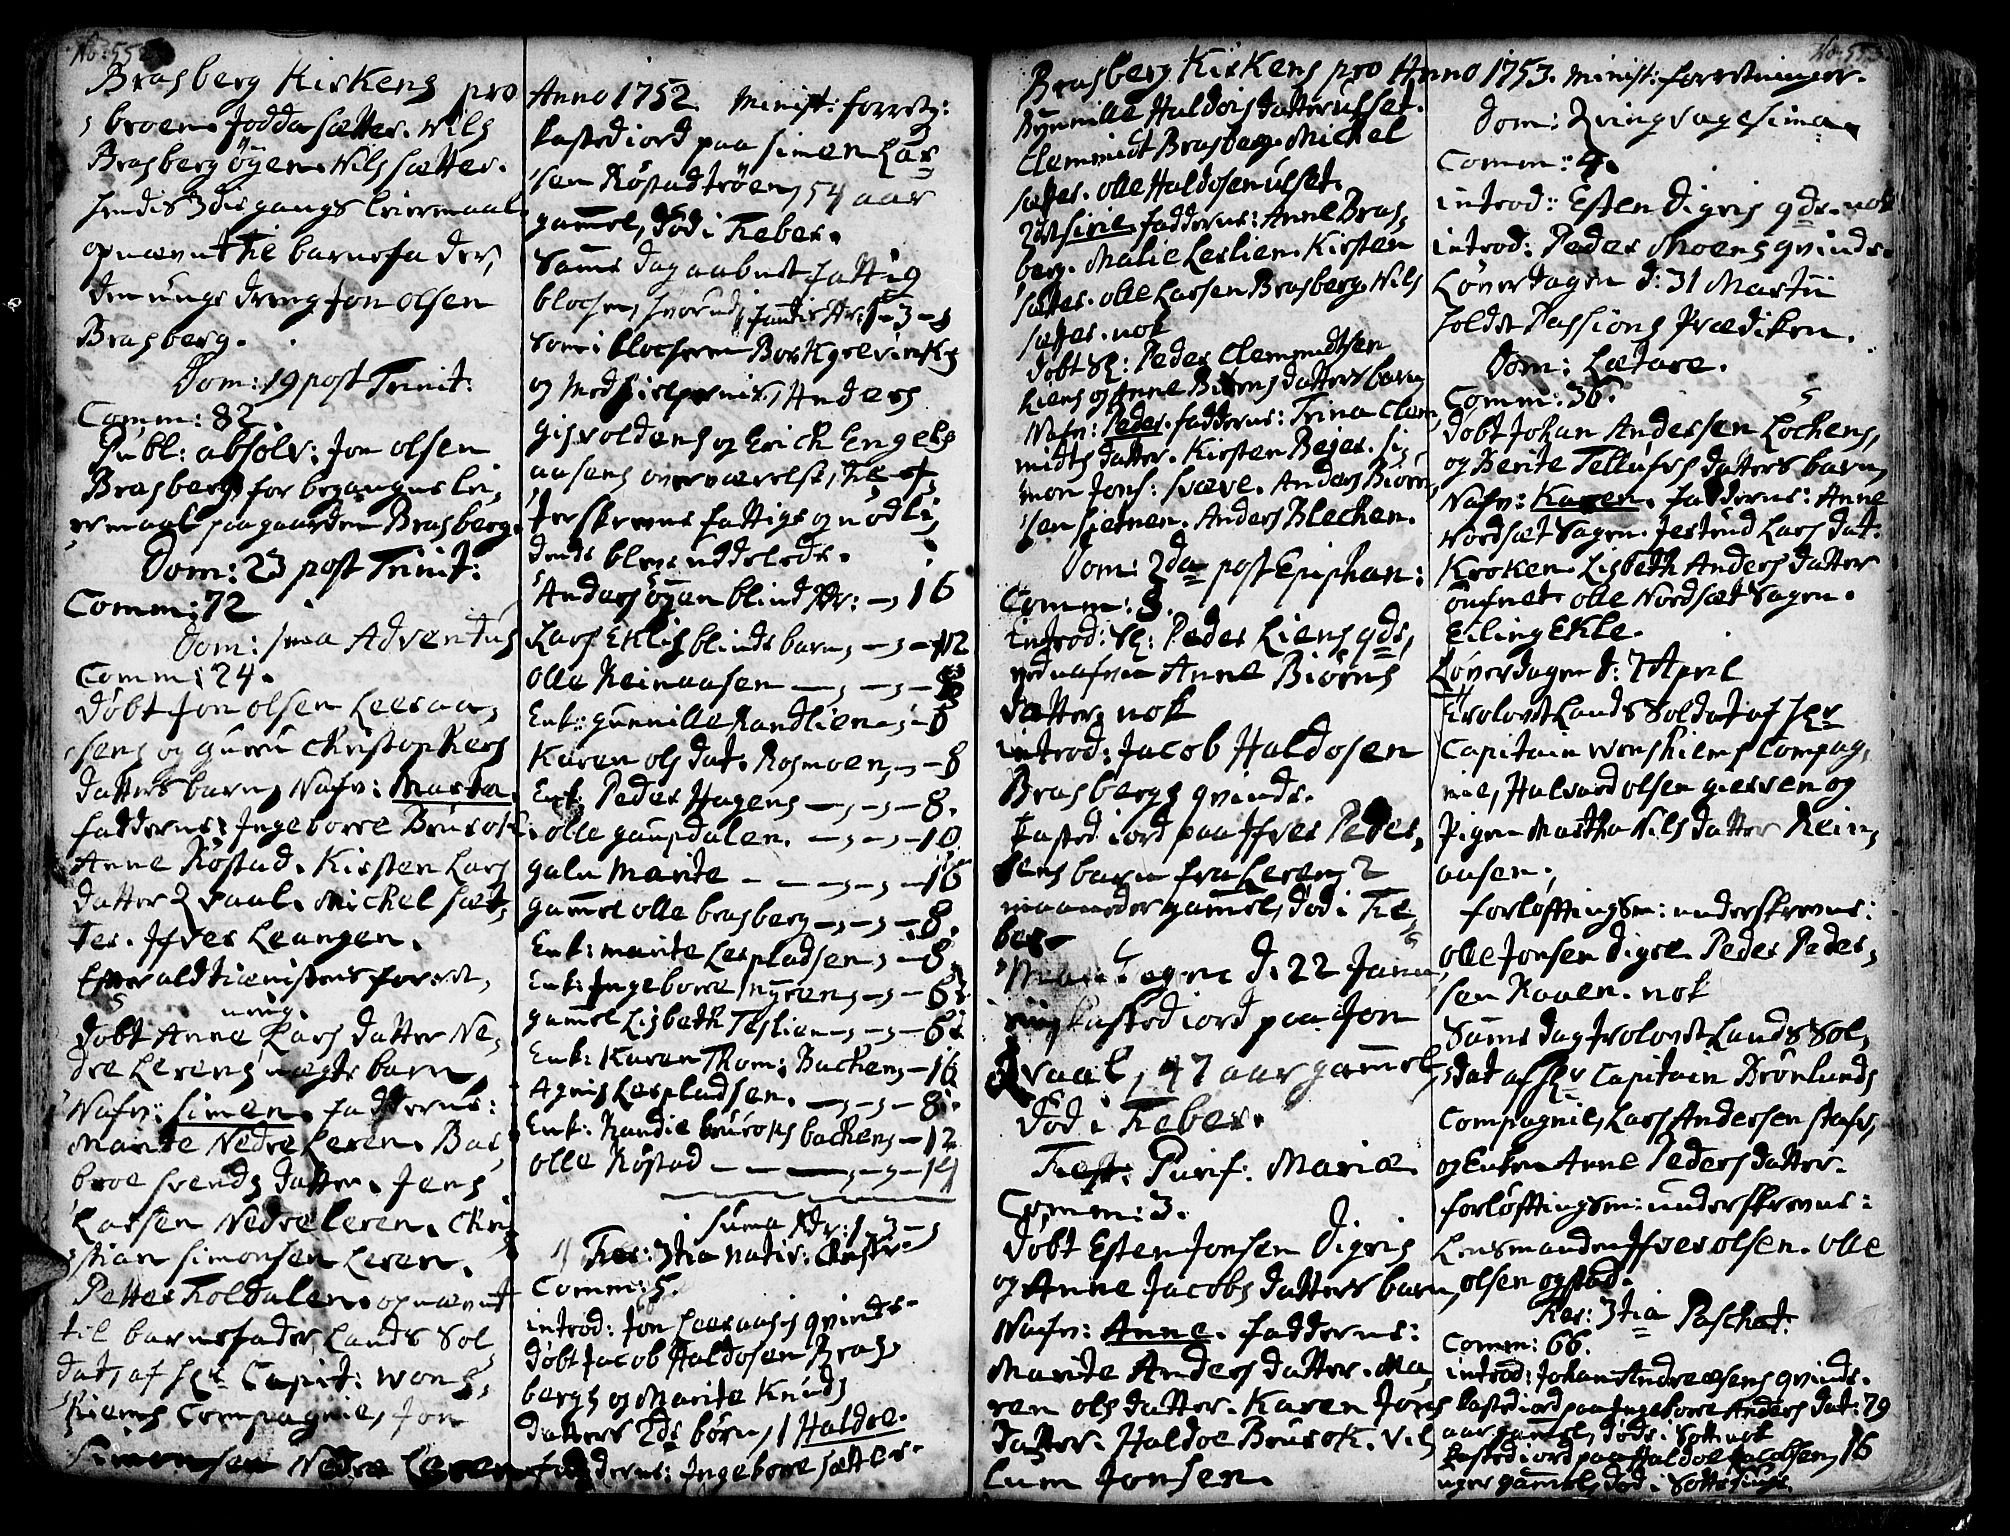 No: 552
Brasberg Kirkens pro
broen. Jodda sætter. Nils
Brasberg øyen. Nils sætter.
hendis 3die gangs leiermaal.
opnævnt til barnefader,
den unge dreng Jon olsen
Brasberg.
Dom: 19 post Trinit:
Comm: 82.
Publ: absolv: Jon olsen
Brasberg for begangne lei,
ermaal paa gaarden Brasberg.
Dom: 23 post Trinit:
Comm: 72
Dom: 1ma Adventus
Comm: 24.
Døbt Jon olsen Leeraa,
sens og Guru Christophers
datters barn, Nafn: Marta.
fadderne: Ingeborre Brusok.
Anne Røstad. Kirsten Lars
datter Qvaal. Michel sæt,
ter. Ifver Leangen.
Efter altienistens forret,
ning.
Døbt Anne Lars datter Ne,
dre Lerens uægte barn,
Nafn: Simen. fadderne:
Marite Nedre Leren. Bar,
broe svends datter. Jens
Larsen Nedre Leren. Chri,
stian Simonsen Leren.
Petter Foldalen. opnævnt
til barnefader, Lands Sol,
dat, af Hr Capit: wons,
kiems Compagnie, Jon
Simonsen Nedre Leren
Anno 1752. Minist: forretn:
kasted iord paa Simen Lar
sen Røstadtrøen, 54 aar
gammel, død i Feber.
Samme dag aabnet fattig
blochen, hvorudj fandtes Rdr: 1-3-
som i blochens
og Medhielpernis, Anders
Gisvoldens og Erich Engels
aasens overværelse, til ef,
terskrevne fattige og nødli,
dende blev uddelede.
Anders øyen blind Rdr: - , 16
Lars Eklis blinde barn, - , - 12
olle Reinaasen - , - , - 8
Enk: gunnille Randlien, - 8
Karen ols dat. Rosmoen, - 8
Enk: Peder Hagens - , - , - 8.
olle gaupdalen. - , - , - 10
galn Marite - - , - , - 16
gammel olle brasberg - , - , - 8.
Enk: marite Lerpladsen, - 8.
Enk: Ingeborre Nyren, - , - 8
gammel Lisbeth Teslien - , - 8
Enk: Karen Thom: Bachen, - 16
Agnis Lerpladsen. - , - , - 8.
Enk: Randie brusoks bachen, - 12
olle Røstad - - , - , - 14
suma Rdr: 1-3-
Fer: 3tia Nativ: Christi
Comm: 5.
introd: Jon Leeraaes qvinde.
Døbt Jacob Haldosen Bras,
bergs og Marite Knuds
datters 2de børn, 1 Haldoe.
fadderne: Ingeborre sætter.
No: 553
Brasberg Kirkens pro Anno 1753. Minist: forretninger.
Clemmidt Brasberg. Michel
sæter. olle Haldosen ulset.
2det Sirie. fadderne: Anne Bras,
berg. Malie Leslien. Kirsten
sæter. olle Larsen Brasberg. Nils
sæter. nok
Døbt Sl: Peder Clemmidtsen
Liens og Anne Biørns datters barn
Nafn: Peder. fadderne: Trina Clem,
midts datter. Kirsten Bejer. Si,
mon Jons: svæve. Anders Biørn,
sen stenen. Anders Blechen.
Dom: 2da post Epiphan:
Comm: 8.
Introd: Sl: Peder Liens qde,
ved nafn Anne Biørns
datter. nok
introd: Jacob Haldosen
Brasbergs qvinde.
kasted iord paa Ifver Peder,
sens barn fra Leren, 2
maaneder gammel, død i Fe
ber.
d: 22 Janu,
kasted iord paa Jon
Qvaal, 47 aar gammel,
Død i Feber.
Fest: Purif: Mariæ
Comm: 3.
Døbt Esten Jonsen Digris
og Anne Jacobs datters barn,
Nafn: Anne. fadderne:
Marite Anders datter. Ma,
ren ols datter. Karen Jons
datter. Haldoe Brusok. Vil,
lum Jonsen.
Dom: Qvinqvagesima.
Comm: 4.
introd: Esten Digris qde. nok
introd: Peder Moens qvinde.
Løverdagen d: 31 Martii
holdt Passions Prædiken.
Dom: Lætare.
Comm: 36.
Døbt Johan Andersen Lochens,
og Berite Tellufs datters barn,
Nafn: Karen. fadderne: Anne
Nordsæt Sagen. Jertrud Lars dat.
Kroken. Lisbeth Anders datter
øufnet. olle Nordsæt Sagen.
Eiling Ekle.
Løverdagen d: 7 April
trolovet Lands Soldat af Hr
Capitain wonskiems Compag,
nie, Halvard olsen giersen og
Pigen Martha Nils datter Rein,
aasen.
forløftingsm: underskrevne:
olle Jonsen Digre. Peder Peder,
sen Raaen. nok
Samme dag trolovet Lands Sol,
dat af Hr Capitain Brønlunds
Compagnie, Lars Andersen stafr,
og Enken Anne Peders datter.
forløftingsm: underskrevne:
Lensmanden Ifver olsen. olle
olsen ogstad.
Fer: 3tia Paschat.
Comm: 66.
introd: Johan Andersens qvinde.
kasted iord paa Ingeborre Anders dat: 79
aar gammel, døde i Sott: nok
kasted iord paa Haldoe Jacobsen, 16
uger gammel, død i